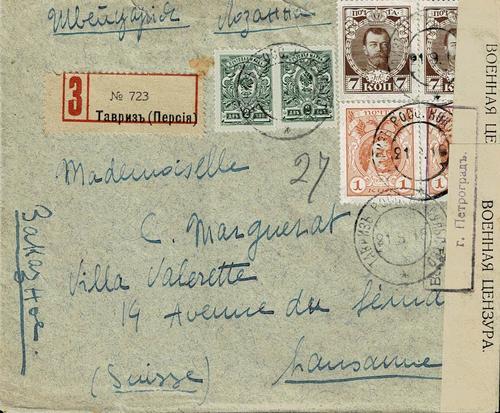 Швейцарія Лозанна
ПОЧТОВАЯ
7 КОП 7
З
№ 723
Тавризъ (Персія)
1 1
27
Mademoiselle
C. Marguerat
Villa Valerette
19 Avenue du Léman
Lausanne
(Suisse)
Заказное.
г. Петроградъ.
ВОЕННАЯ ЦЕ
ВОЕННАЯ ЦЕНЗУРА.